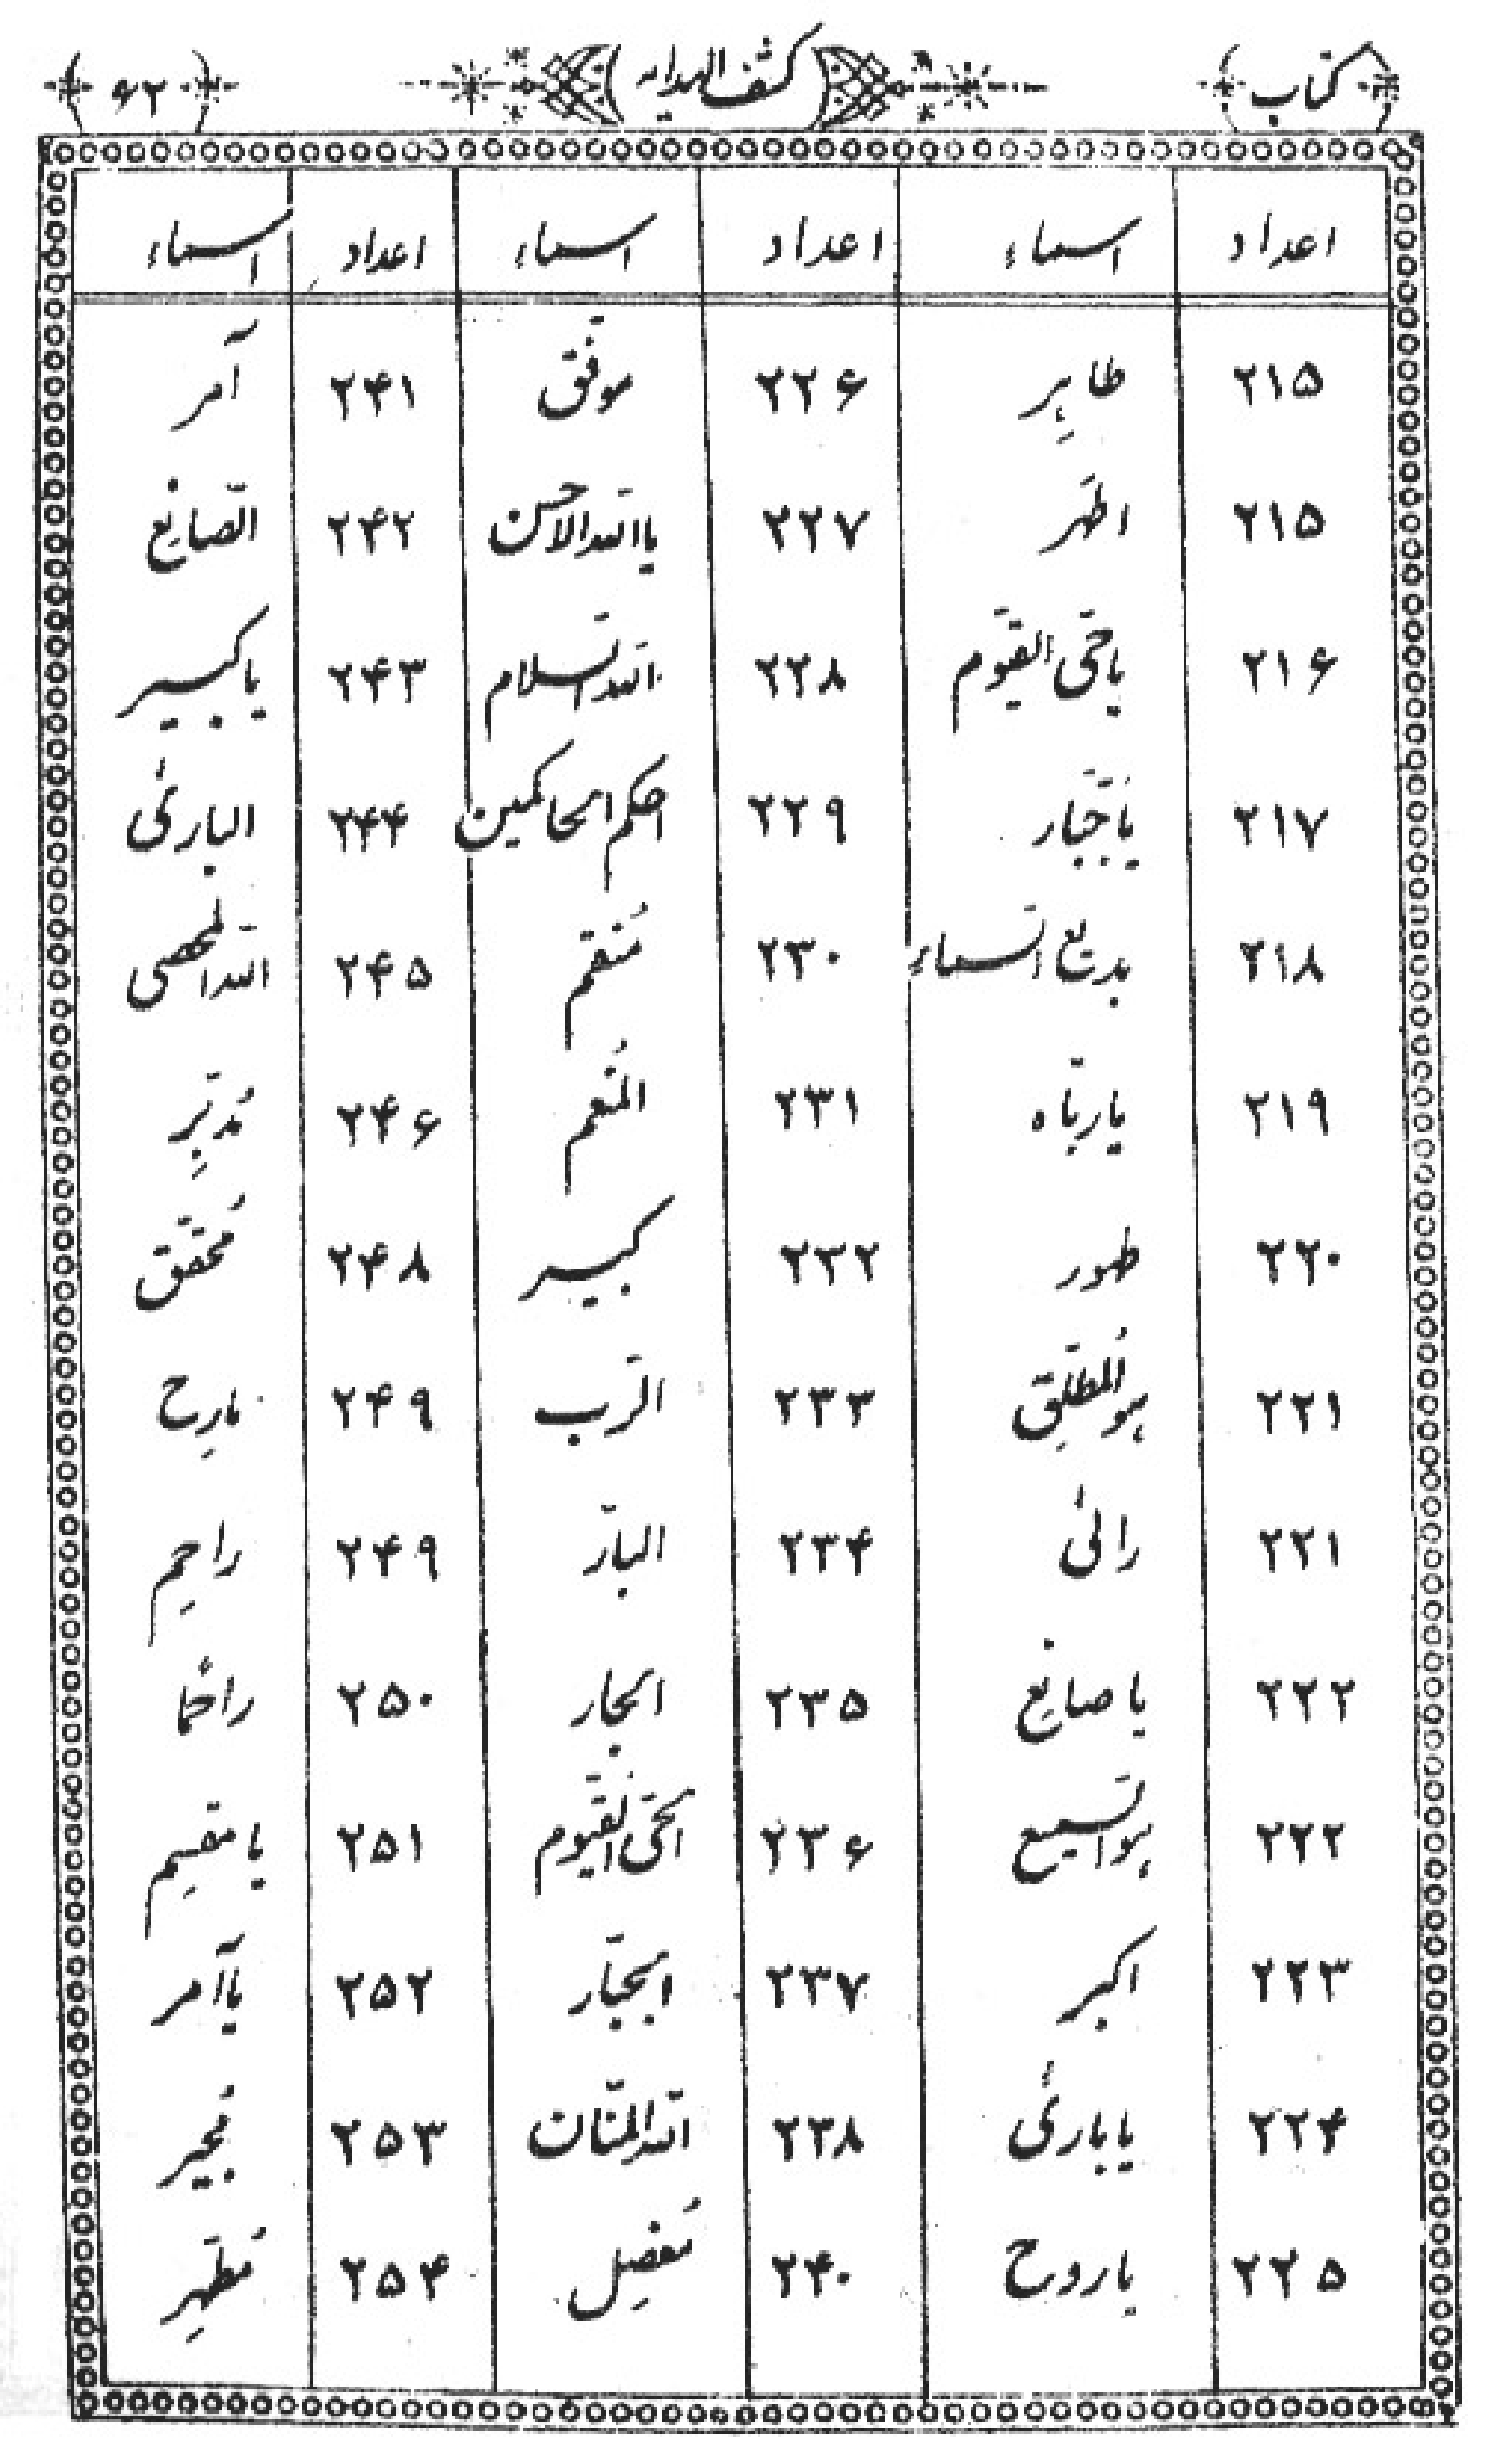 کتاب کشف الہدایہ ۶۲
اعداد اسماء اعداد اسماء اعداد اسماء
۲۱۵ طاہِر ۲۲۶ موفّق ۲۴۱ آمر
۲۱۵ اطہَر ۲۲۷ یااللہ الاحسن ۲۴۲ الصّانِع
۲۱۶ یاحَیّ القیّوم ۲۲۸ اللہ السّلام ۲۴۳ یا کبیر
۲۱۷ یاجَبّار ۲۲۹ احکم الحاکمین ۲۴۴ البارئ
۲۱۸ بدیع السّماء ۲۳۰ مُنعم ۲۴۵ اللہ المحصی
۲۱۹ یاربّاہ ۲۳۱ المُنعم ۲۴۶ مُدبّرِ
۲۲۰ طہور ۲۳۲ کبیر ۲۴۸ مُحقّق
۲۲۱ ہوالمُطلِق ۲۳۳ الرّب ۲۴۹ مادِح
۲۲۱ رائی ۲۳۴ البارّ ۲۴۹ راحِم
۲۲۲ یا صانِع ۲۳۵ الجار ۲۵۰ راحماً
۲۲۲ ہوالسّمیع ۲۳۶ الحَیّ القیّوم ۲۵۱ یا مقسِم
۲۲۳ اکبر ۲۳۷ الجبّار ۲۵۲ یا آمر
۲۲۴ یا بارئ ۲۳۸ اللہ المنّان ۲۵۳ مُجیر
۲۲۵ یا روح ۲۴۰ مُفضِل ۲۵۴ مُطہّرِ